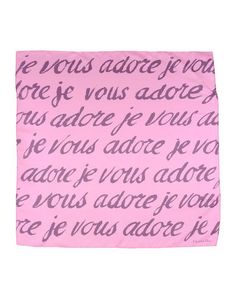 je vous adore je vous
adore je vous adore
je vous adore je vous
s adore je vous adore
je vous adore je vous
adore je vous adore je
vous adore je vous